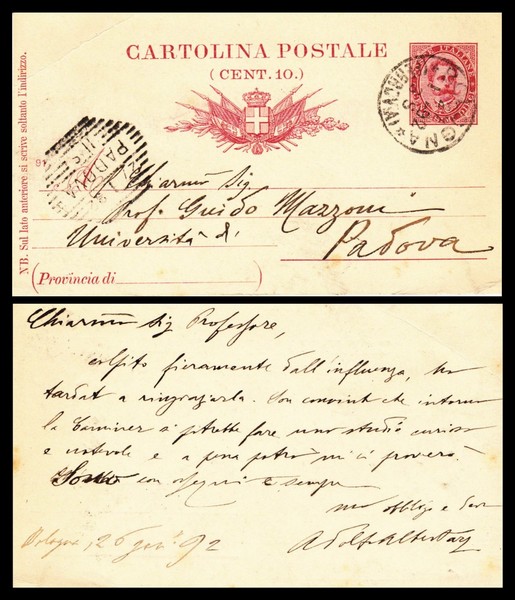 CARTOLINA POSTALE
(CENT. 10.)
NB. Sul lato anteriore si scrive soltanto l'indirizzo.
PADOVA
Chiarmo Sig
Prof. Guido Mazzoni
Università di
Padova
(Provincia di
Chiarmo Sig Professore,
colpito fieramente dall'influenza, ho
tardat a ringraziarla. Son convint che intorno
la si potrebbe fare uno studio curioso
e notevole e a pena potrò mi ci proverò.
Sono con ossequi e sempre
suo obbligo e dev
Bologna, 26 genn 92
Adolfo Albertazzi